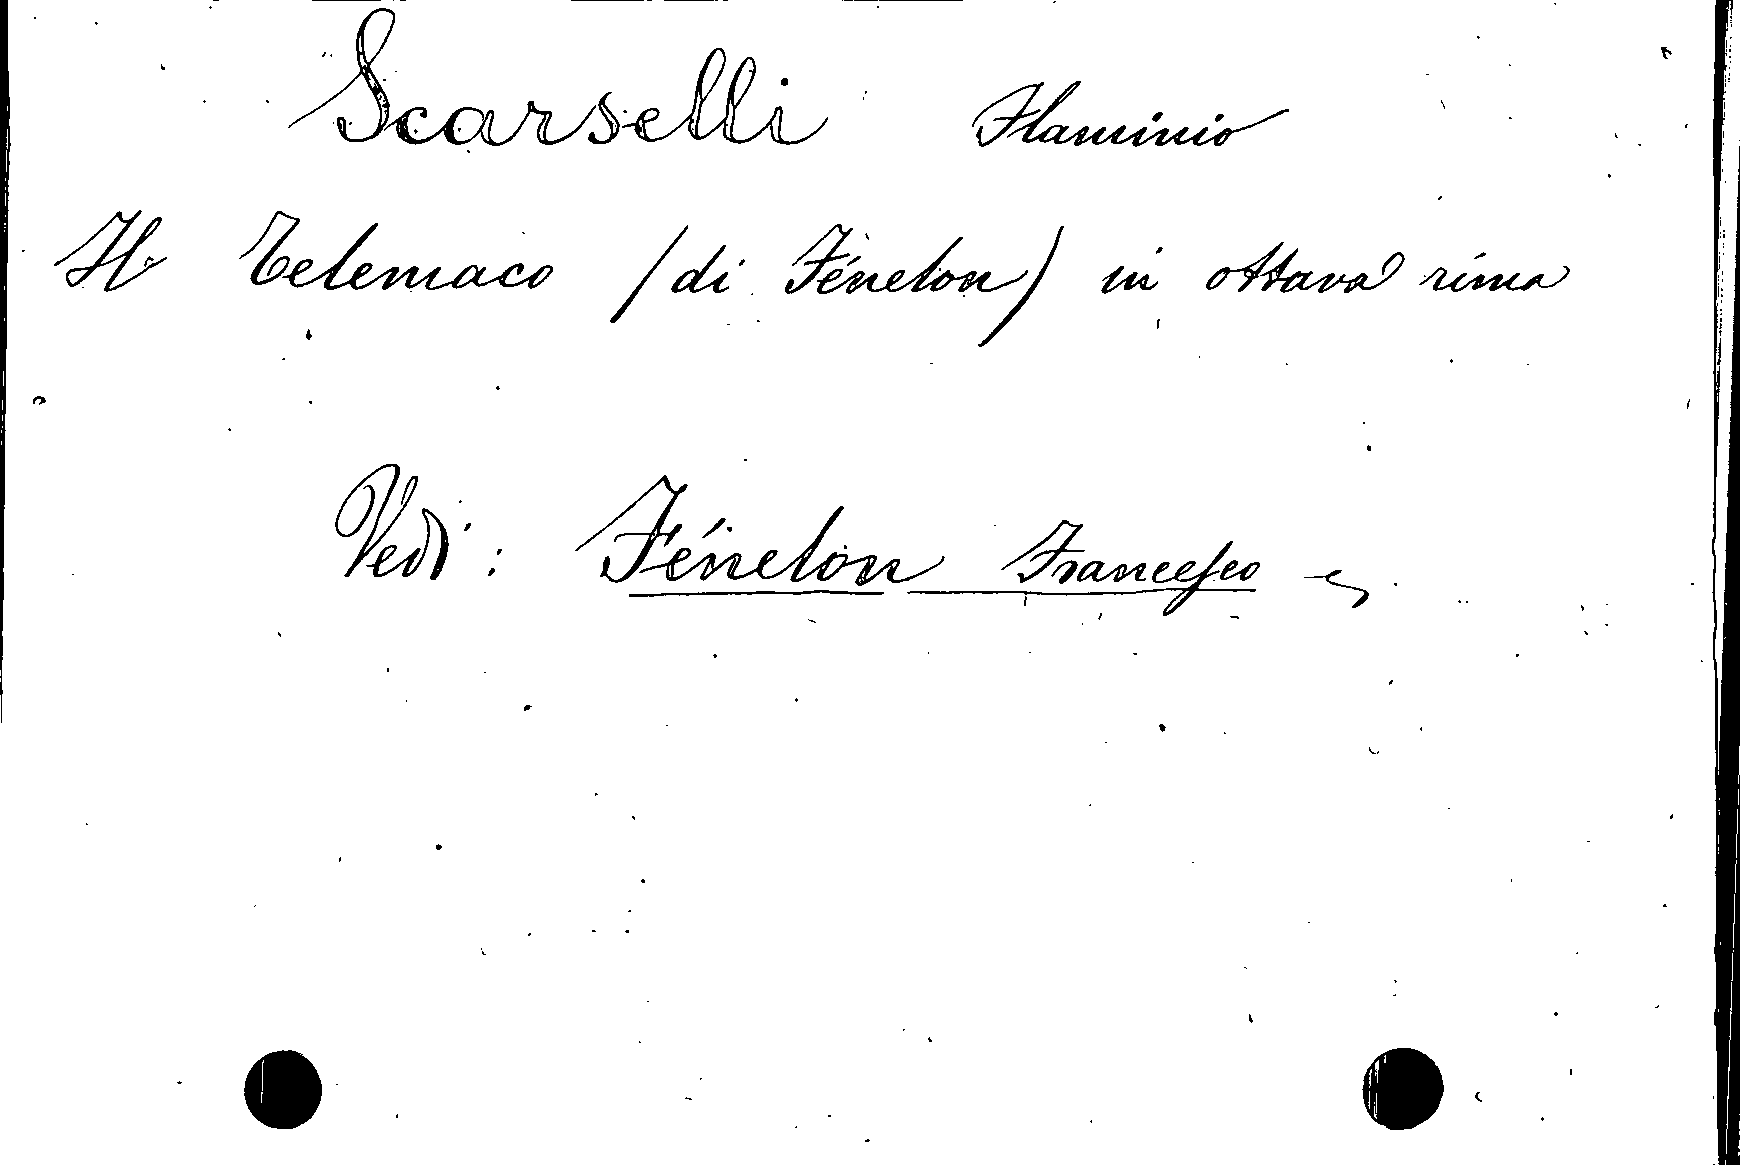 Scarselli Flaminio
Il Telemaco (di Fénelon) in ottava rima
Vedi: Fénelon Francesco